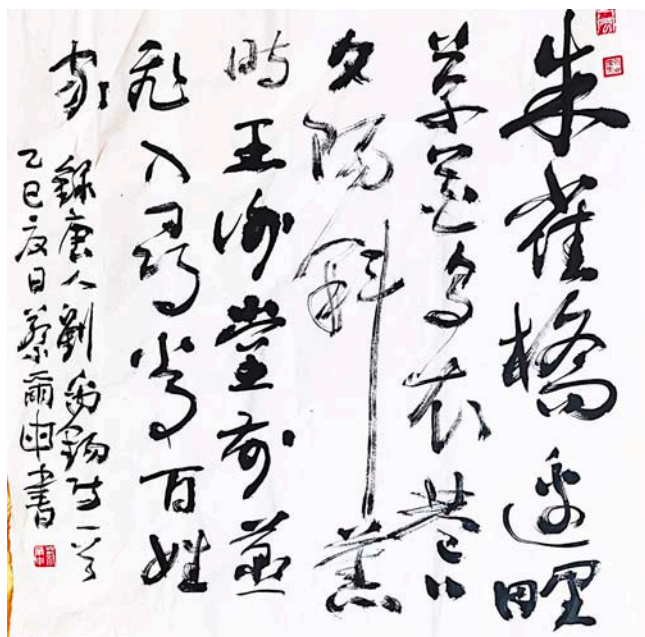 朱雀橋邊野
草花烏衣巷口
夕陽斜舊
時王謝堂前燕
飛入尋常百姓
家 錄唐人劉禹錫詩一首
乙巳夏日蔡爾申書